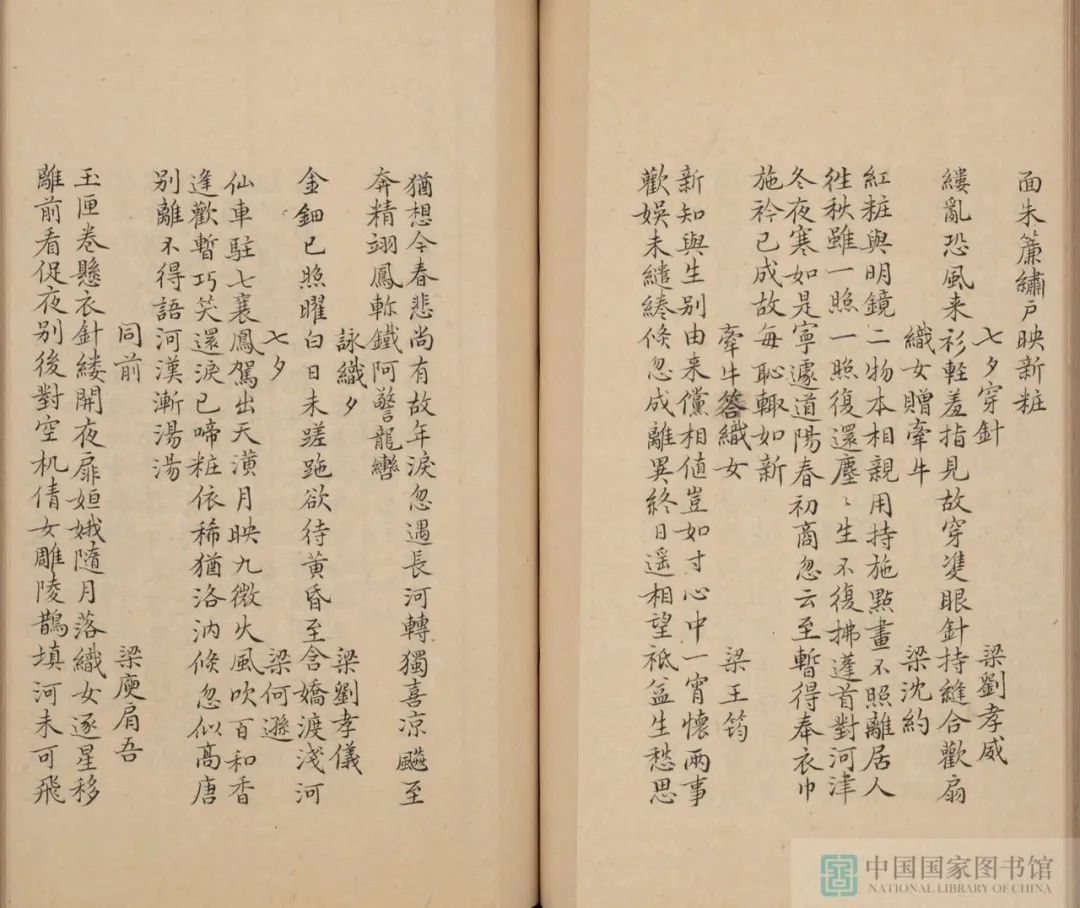 面朱簾繡戶映新粧
七夕穿針
梁劉孝威
縷亂恐風来衫輕羞指見故穿雙眼針持縫合歡扇
織女贈牽牛
梁沈約
紅粧與明鏡二物本相親用持施點畫不照離居人
徃秋雖一照一照復還塵〻生不復拂蓬首對河津
冬夜寒如是寧遽道陽春初商忽云至暫得奉衣巾
施衿已成故每恥輙如新
牽牛答織女
梁王筠
新知與生别由来儻相值豈如寸心中一宵懷兩事
歡娛未繾綣倐忽成離異終日遥相望祗益生愁思
猶想今春悲尚有故年淚忽遇長河轉獨喜凉飈至
奔精翊鳳軫鐵阿警龍轡
詠織女
梁劉孝儀
金鈿已照曜白日未蹉跎欲待黄昏至含嬌渡淺河
七夕
梁何遜
仙車駐七襄鳳駕出天潢月映九微火風吹百和香
逢歡暫巧笑還淚已啼粧依稀猶洛汭倐忽似高唐
别離不得語河漢漸湯湯
同前
梁庾肩吾
玉匣卷懸衣針縷開夜扉姮娥隨月落織女逐星移
離前看促夜别後對空机倩女雕陵鵲填河未可飛
中国国家图书馆
NATIONAL LIBRARY OF CHINA